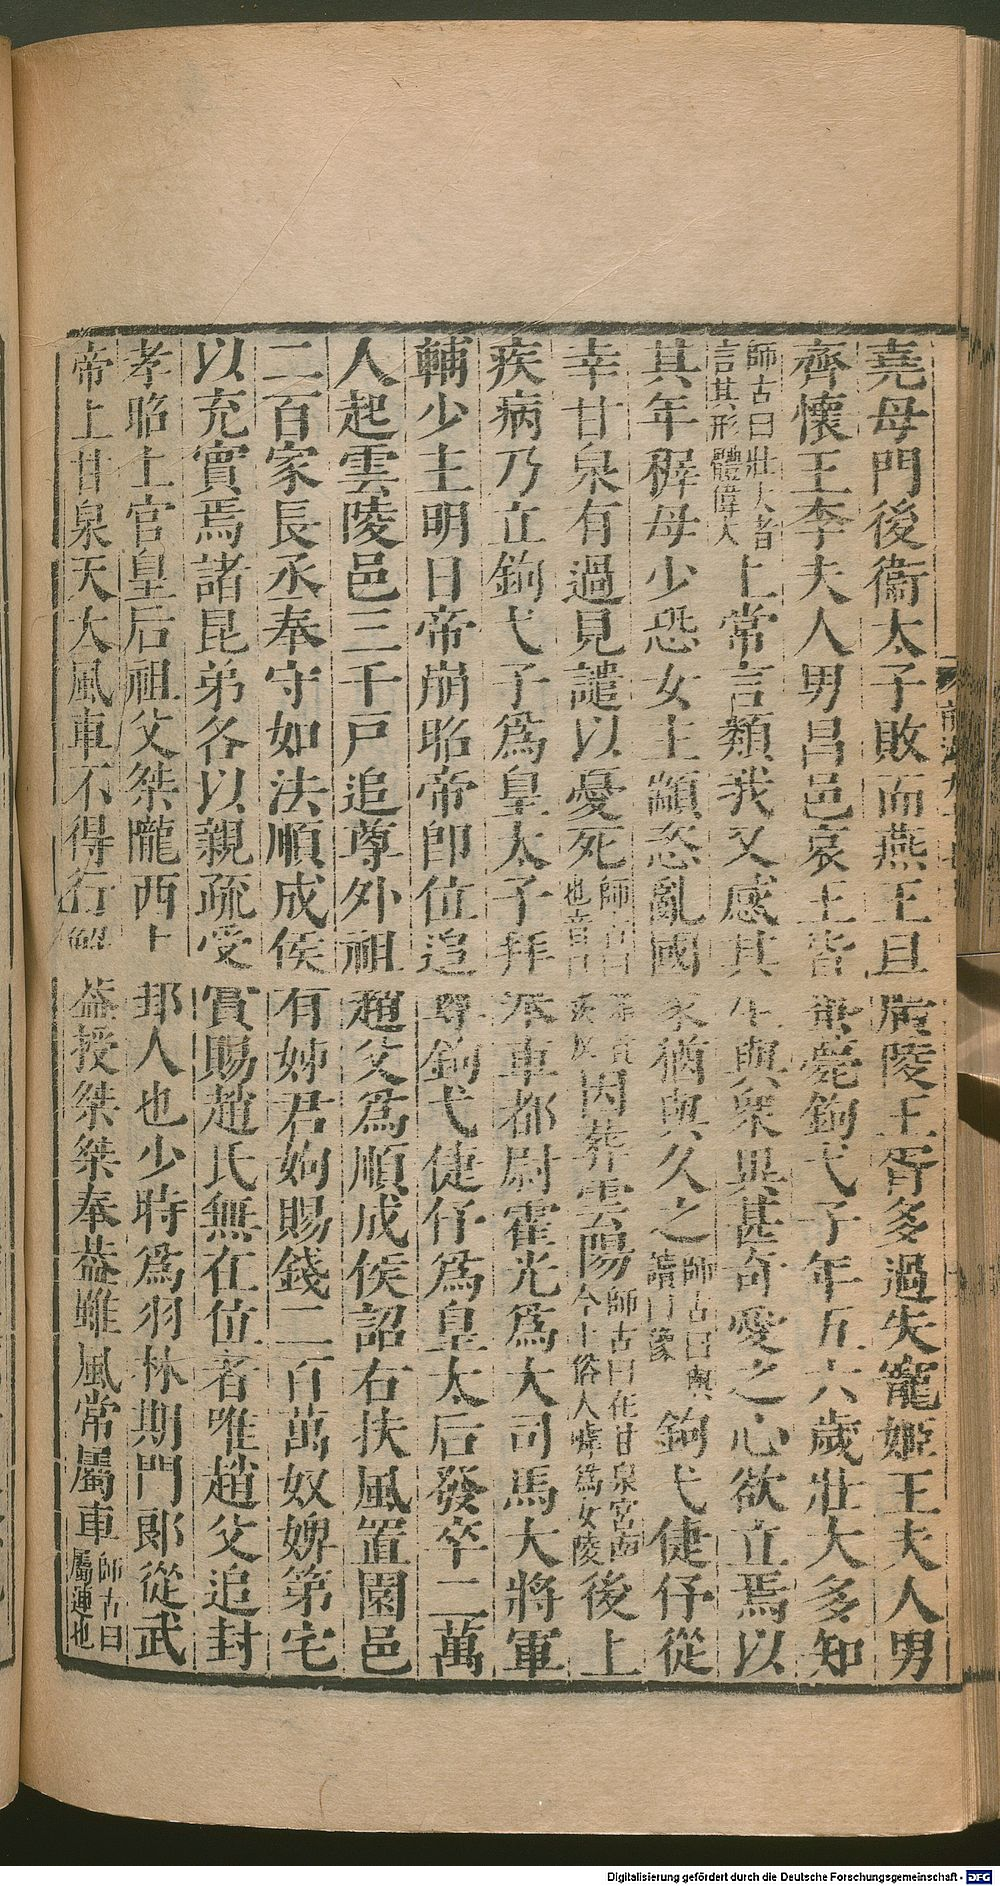 堯母門後衞太子敗而燕王旦廣陵王胥多過失寵姬王夫人男
齊懷王李夫人男昌邑哀王皆蚤薨鉤弋子年五六歲壯大多知
師古曰壯大者言其形體偉大上常言類我又感其生與衆異甚奇愛之心欲立焉以
其年穉母少恐女主顓恣亂國家猶與久之師古曰與讀曰豫鉤弋倢伃從
幸甘泉有過見譴以憂死因葬雲陽師古曰在甘泉宮南今土俗人嘑爲女陵後上
疾病乃立鉤弋子爲皇太子拜奉車都尉霍光爲大司馬大將軍
輔少主明日帝崩昭帝卽位追尊鉤弋倢伃爲皇太后發卒二萬
人起雲陵邑三千戸追尊外祖趙父爲順成侯詔右扶風置園邑
二百家長丞奉守如法順成侯有姊君姁賜錢二百萬奴婢第宅
以充實焉諸昆弟各以親疏受賞賜趙氏無在位者唯趙父追封
孝昭上官皇后祖父桀隴西上邽人也少時爲羽林期門郎從武
帝上甘泉天大風車不得行解蓋授桀桀奉蓋雖風常屬車師古曰屬連也
Digitalisierung gefördert durch die Deutsche Forschungsgemeinschaft - DFG